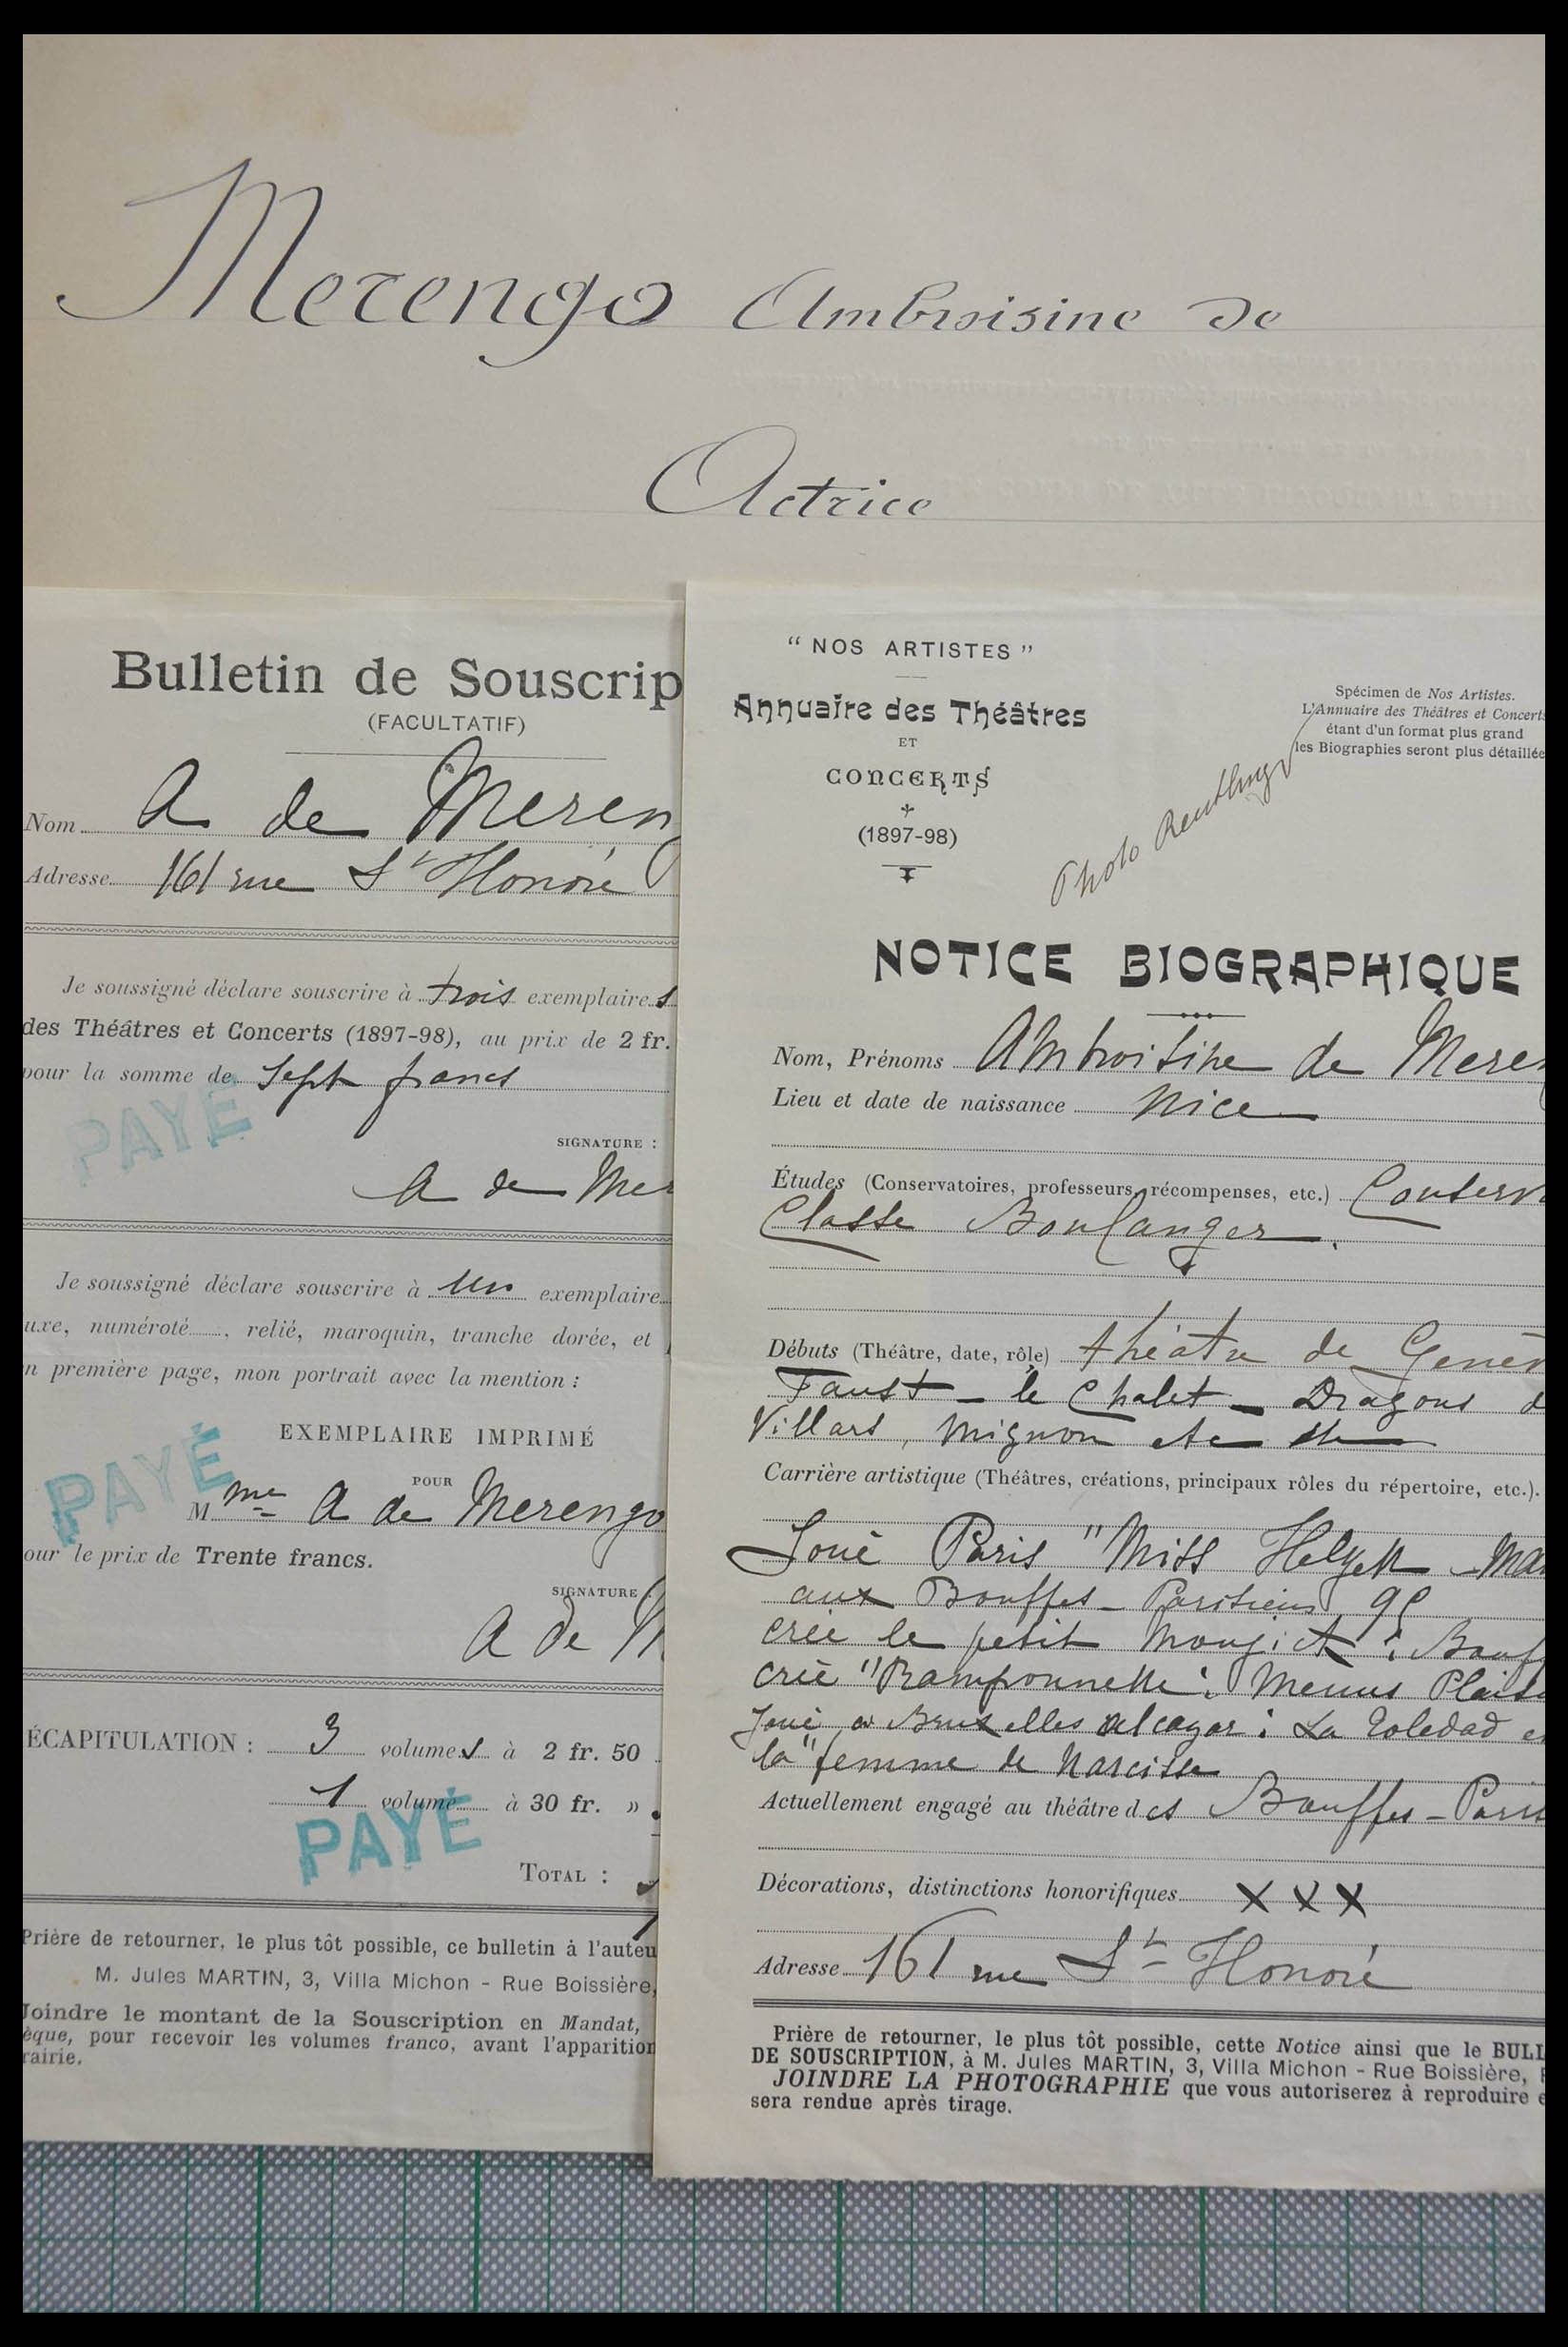 Merengo Ambroisine de
Actrice
Bulletin de Souscrip
(FACULTATIF)
Nom A de Meren
Adresse 161 rue St Honoré
Je soussigné déclare souscrire à trois exemplaires
des Théâtres et Concerts (1897-98), au prix de 2 fr.
pour la somme de Sept francs
PAYÉ
SIGNATURE :
A de Mer
Je soussigné déclare souscrire à un exemplaire
uxe, numéroté, relié, maroquin, tranche dorée, et
n première page, mon portrait avec la mention :
EXEMPLAIRE IMPRIMÉ
PAYÉ
POUR
Mme A de Merengo
our le prix de Trente francs.
SIGNATURE
A de M
ÉCAPITULATION : 3 volumes à 2 fr. 50
1 volume à 30 fr. »
PAYÉ
TOTAL :
Prière de retourner, le plus tôt possible, ce bulletin à l'auteu
M. Jules MARTIN, 3, Villa Michon - Rue Boissière,
Joindre le montant de la Souscription en Mandat,
èque, pour recevoir les volumes franco, avant l'apparition
rairie.
"NOS ARTISTES"
Annuaire des Théâtres
ET
CONCERTS
(1897-98)
Spécimen de Nos Artistes.
L'Annuaire des Théâtres et Concerts
étant d'un format plus grand
les Biographies seront plus détaillée
Photo Reutlinger
NOTICE BIOGRAPHIQUE
Nom, Prénoms Ambroisine de Meren
Lieu et date de naissance Nice
Études (Conservatoires, professeurs, récompenses, etc.) Conserva
Classe Boulanger.
Débuts (Théâtre, date, rôle) théâtre de Genèv
Faust - le Chalet - Dragons d
Villars, Mignon etc etc
Carrière artistique (Théâtres, créations, principaux rôles du répertoire, etc.).
Joué Paris "Miss Helyett - Ma
aux Bouffes-Parisiens, 95
crée le petit Moujick : Bouff
crée "Ramponnette : Menus Plaisi
Joué à Bruxelles alcazar : La Soledad e
la "femme de Narcisse
Actuellement engagé au théâtre des Bouffes-Paris
Décorations, distinctions honorifiques X X X
Adresse 161 rue St Honoré
Prière de retourner, le plus tôt possible, cette Notice ainsi que le BULL
DE SOUSCRIPTION, à M. Jules MARTIN, 3, Villa Michon - Rue Boissière, P
JOINDRE LA PHOTOGRAPHIE que vous autoriserez à reproduire e
sera rendue après tirage.